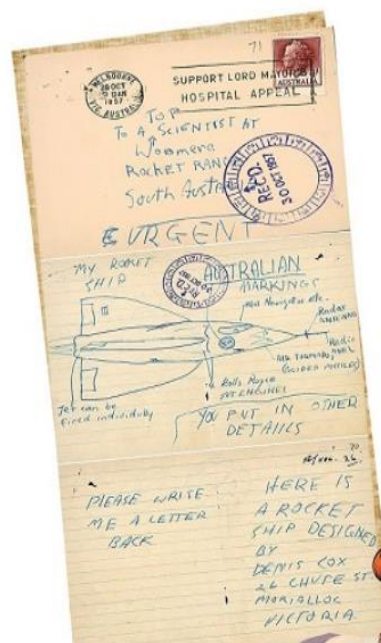 71
MELBOURNE
28 OCT
1957
VIC. AUSTRALIA
SUPPORT LORD MAYOR'S
HOSPITAL APPEAL
TOP
TO A SCIENTIST AT
Woomera
ROCKET RANGE
South Australia
URGENT
REC'D.
30 OCT 1957
MY ROCKET
SHIP
REC'D
AUSTRALIAN
MARKINGS
Navigator etc.
Radar
Radio
(GUIDED MISSILES)
III
Rolls Royce
JET ENGINES
Jet can be
fired individuly
YOU PUT IN OTHER
DETAILS
PLEASE WRITE
ME A LETTER
BACK
HERE IS
A ROCKET
SHIP DESIGNED
BY
DENIS COX
26 CHUTE ST
MORIALLOC
VICTORIA